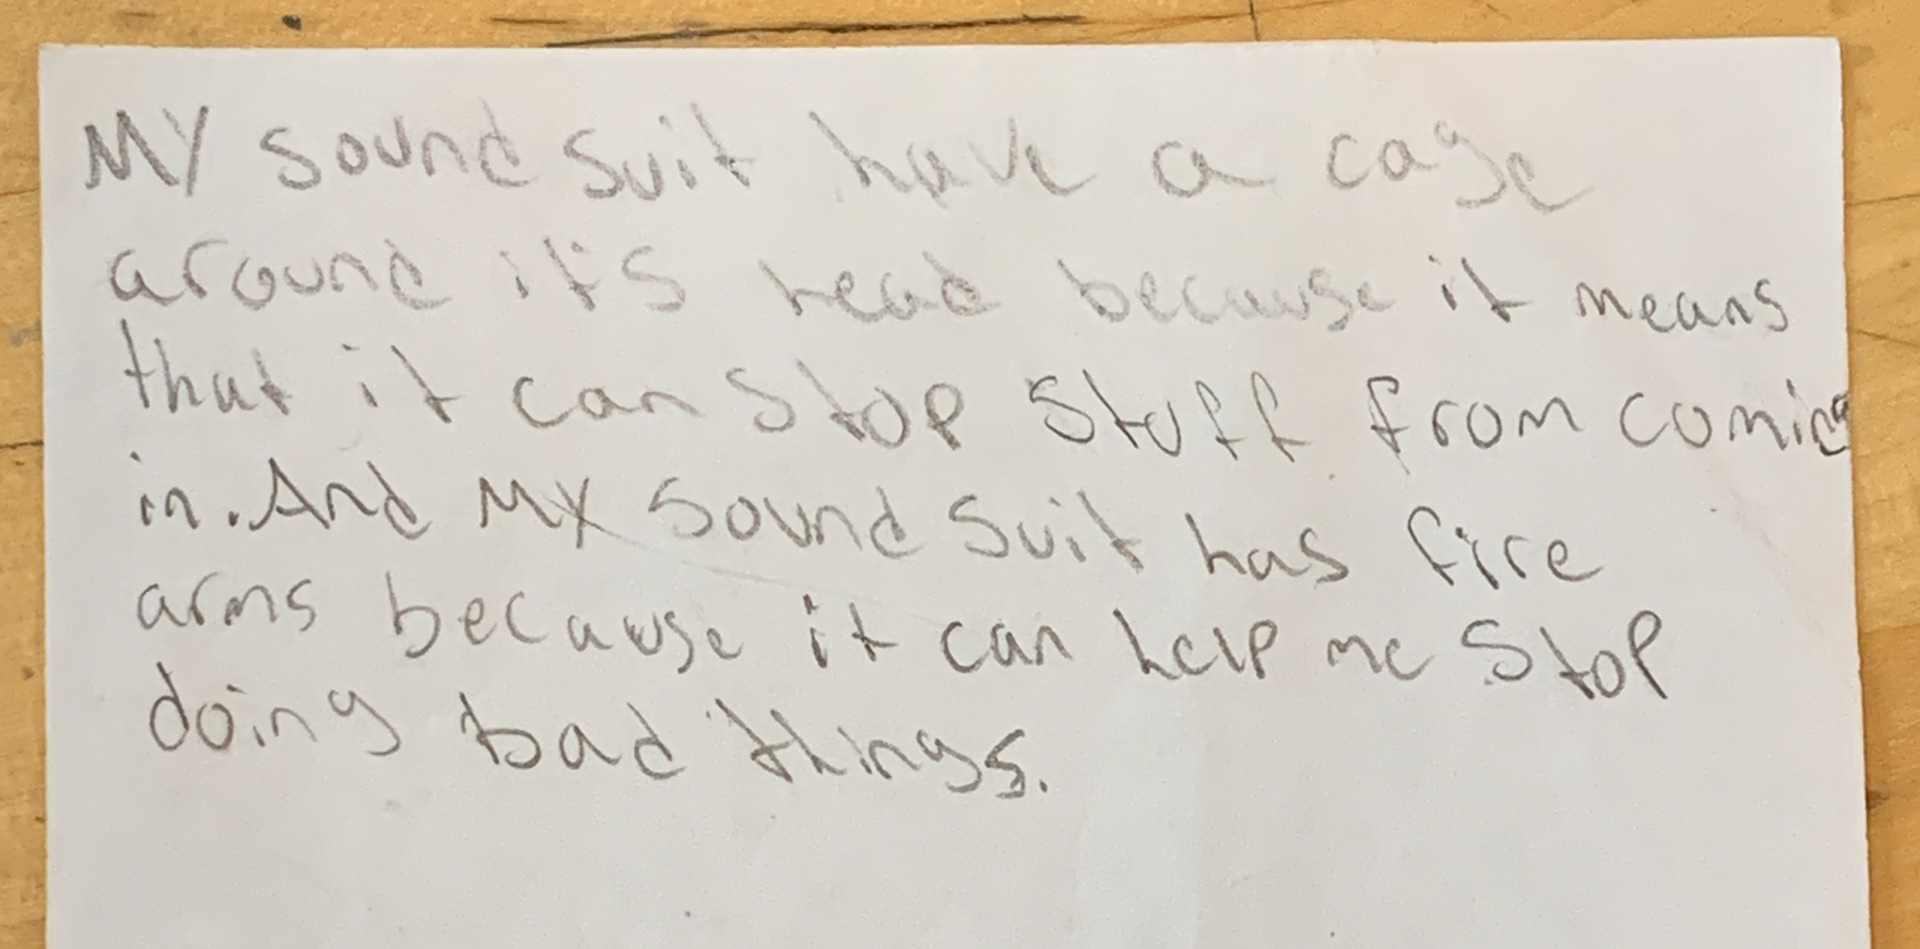 My sound suit have a cage
around it's head because it means
that it can stop stuff from coming
in. And my sound suit has fire
arms because it can help me stop
doing bad things.